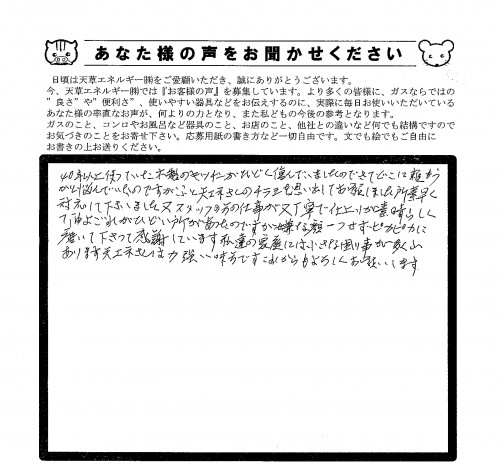 あなた様の声をお聞かせください
日頃は天草エネルギー㈱をご愛顧いただき、誠にありがとうございます。
今、天草エネルギー㈱では『お客様の声』を募集しています。より多くの皆様に、ガスならではの
”良さ”や”便利さ”、使いやすい器具などをお伝えするのに、実際に毎日お使いいただいている
あなた様の率直なお声が、何よりの力となり、また私どもの今後の参考となります。
ガスのこと、コンロやお風呂など器具のこと、お店のこと、他社との違いなど何でも結構ですので
お気づきのことをお寄せ下さい。応募用紙の書き方など一切自由です。文でも絵でもご自由に
お書きの上お送りください。
40年以上使っていた木製のキッチンがひどく傷んでいましたのでさてどこに頼もう
かと悩んでいたのですがふっと天エネさんのチラシを思い出してお願いしました所素早く
対応して下さいました又スタッフの方の仕事が又丁寧で仕上りが素晴らしく
て油よごれがひどい所があったのですが嫌な顔一つせずピカピカに
磨いて下さって感謝しています私達の家庭には小さな困り事が沢山
あります天エネさんは力強い味方ですこれからもよろしくお願いします